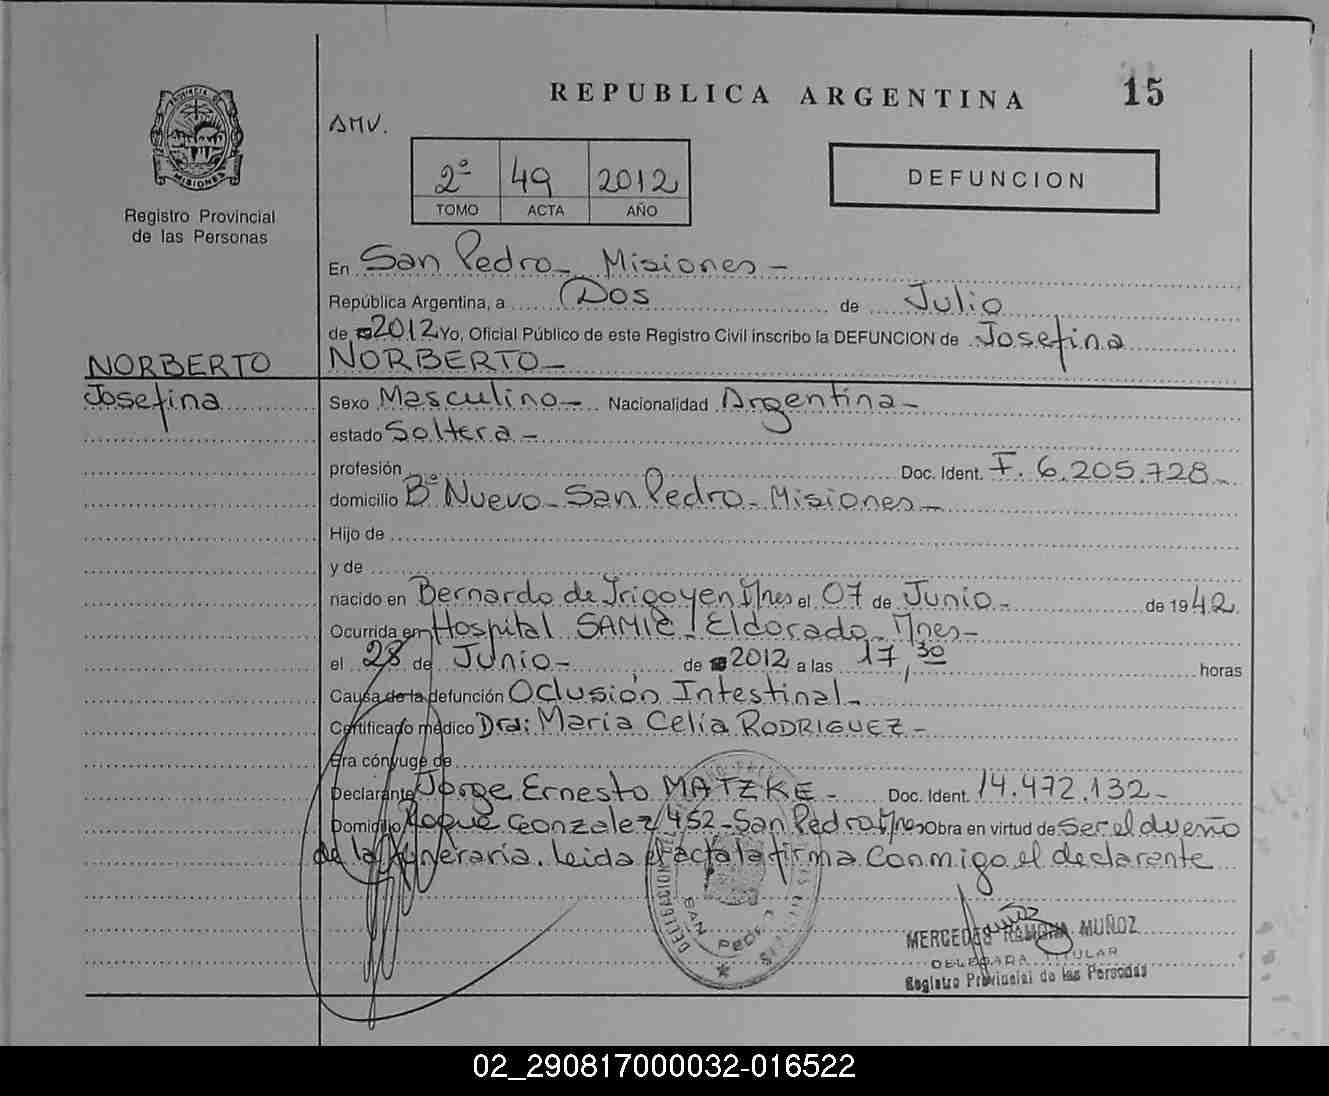 REPUBLICA ARGENTINA
15
PROVINCIA DE
MISIONES
Registro Provincial
de las Personas
AMV.
2º 49 2012
TOMO ACTA AÑO
DEFUNCION
En San Pedro - Misiones -
República Argentina, a Dos de Julio
de 2012 Yo, Oficial Público de este Registro Civil inscribo la DEFUNCION de Josefina
NORBERTO -
NORBERTO
Josefina
Sexo Masculino - Nacionalidad Argentina -
estado Soltera -
profesión Doc. Ident. F. 6.205.728 -
domicilio Bº Nuevo - San Pedro - Misiones -
Hijo de
y de
nacido en Bernardo de Irigoyen Mnes el 07 de Junio - de 1942
Ocurrida en Hospital SAMIC - Eldorado - Mnes -
el 28 de Junio - de 2012 a las 17,30 horas
Causa de la defunción Oclusión Intestinal -
Certificado médico Dra: María Celia RODRIGUEZ -
Era cónyuge de
Declarante Jorge Ernesto MATZKE - Doc. Ident. 14.472.132 -
Domicilio Roque Gonzalez 452 - San Pedro Mnes Obra en virtud de ser el dueño
de la funeraria. Leida el acta la firma conmigo el declarente
DELEGACION
SAN PEDRO
MERCEDES RAMONA MUÑOZ
DELEGADA TITULAR
Registro Provincial de las Personas
02_290817000032-016522